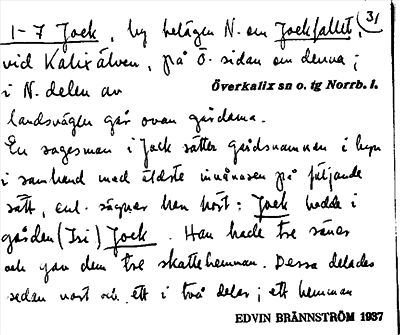 31
1-7 Jock, by belägen N. om Jockfallet,
vid Kalixälven, på Ö. sidan om denna;
i N. delen av
Överkalix sn o. tg Norrb. l.
landsvägen går ovan gårdarna.
En sagesman i Jock sätter gårdsnamnen i byn
i samband med äldste innänaren på följande
sätt, enl. sägner han hört: Jock bodde i
gården (Isi) Jock. Han hade tre söner
och gav dem tre skattehemman. Dessa delades
sedan vart och ett i två delar; ett hemman
EDVIN BRÄNNSTRÖM 1937